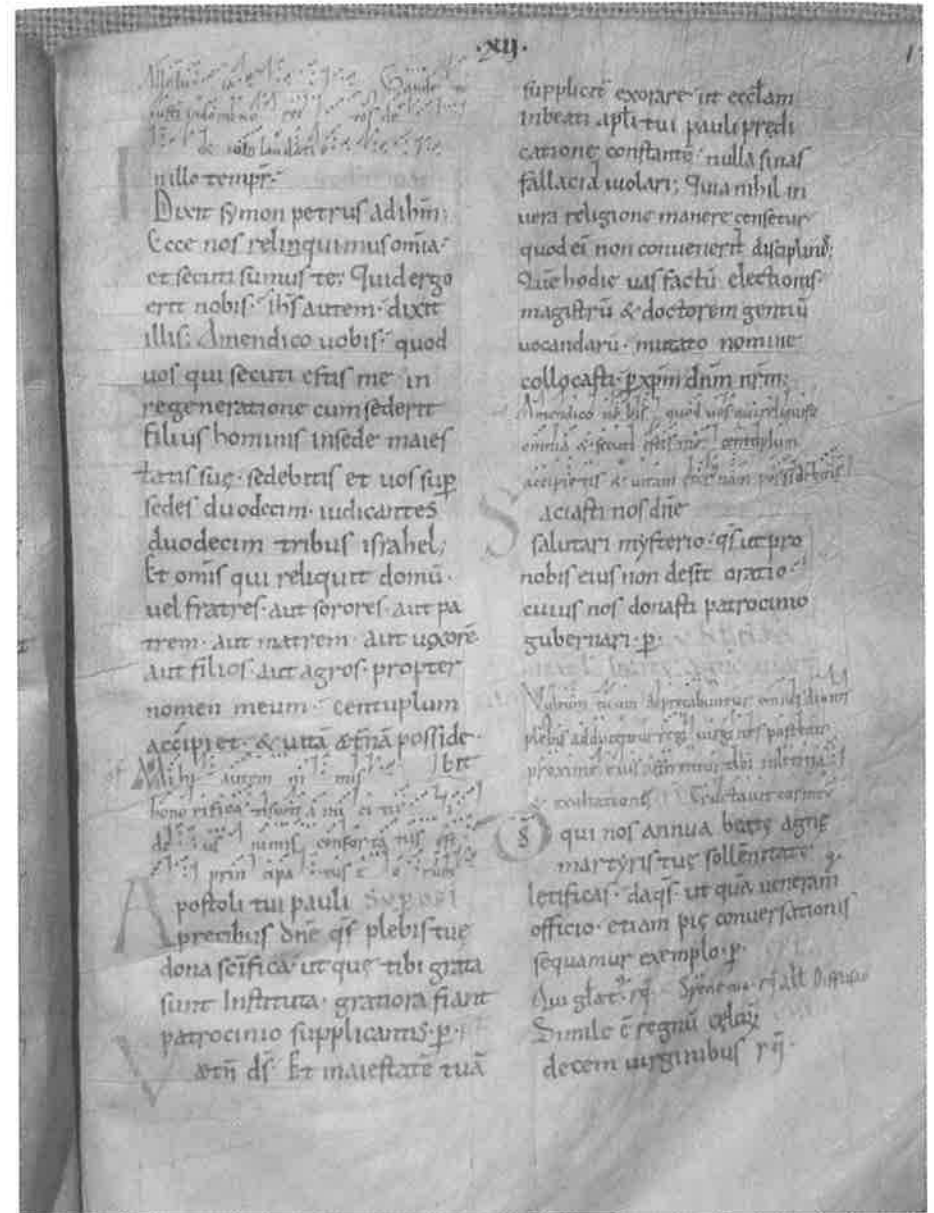 ·xij·
Gaude
iusti in domino
In illo tempr̄·
Dixit symon petrus ad ihm̄;
Ecce nos relinquimus om̄ia·
et secuti sumus te; Quid ergo
erit nobis· ihs̄ autem· dixit
illis; Amen dico uobis· quod
uos qui secuti estis me in
regeneratione cum sederit
filius hominis in sede maies
tatis suę· sedebitis et uos sup̄
sedes duodecim· iudicantes
duodecim tribus israhel;
Et om̄is qui reliquit domū·
uel fratres· aut sorores· aut pa
trem· aut matrem· aut uxorē·
aut filios· aut agros· propter
nomen meum· centuplum
accipiet· & uitā æt̄nā posside
bit
Mihi autem ni mis
hono rifica ti sunt a mi ci tui
de us nimis conforta tus est
prin cipa tus e o rum
Apostoli tui pauli
precibus dn̄e qs̄ plebis tuę
dona sc̄ifica· ut quę tibi grata
sunt Instituta· gratiora fiant
patrocinio supplicantis· p̄·
V æt̄n̄ ds̄· Et maiestatē tuā
supplicit̄ exorare· ut eccl̄am
in beati apl̄i tui pauli prędi
catione constantē nulla sinas
fallacia uiolari; Quia nihil in
uera religione manere censetur
quod ei non conuenerit disciplinis;
Quē hodie uas factū electionis·
magistrū & doctorem gentiū
uocandarū· mutato nomine
collocasti· p̄ xp̄m dn̄m nr̄m;
Amen dico uo bis quod uos qui reliquistis
omnia & secuti estis me centuplum
accipietis & uitam
Saciasti nos dn̄e
salutari mysterio· qs̄ ut pro
nobis eius non desit oratio
cuius nos donasti patrocinio
gubernari· p̄·
Vultum tuum deprecabuntur omnes diuites
plebis adducentur regi uirgines post eam
proxime eius
& exultatione Eructauit cor meū
Ds̄ qui nos annua beatę agnę
martyris tuę sollēnitate
letificas· da qs̄· ut quā ueneram̄
officio· etiam pię conuersationis
sequamur exemplo· p̄·
Qui gl̄at̄· rq̄· all̄ Diffusa
Simile ē regnū cęlōꝝ
decem uirginibus rq̄·